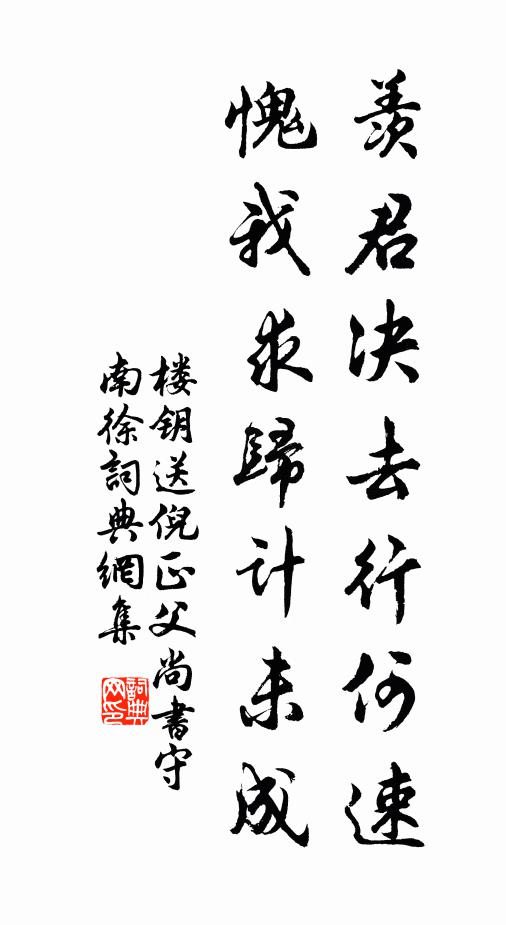 羡君决去行何速
愧我求歸计未成
楼钥送倪正父尚書守
南徐詞典網集
詞典
网印